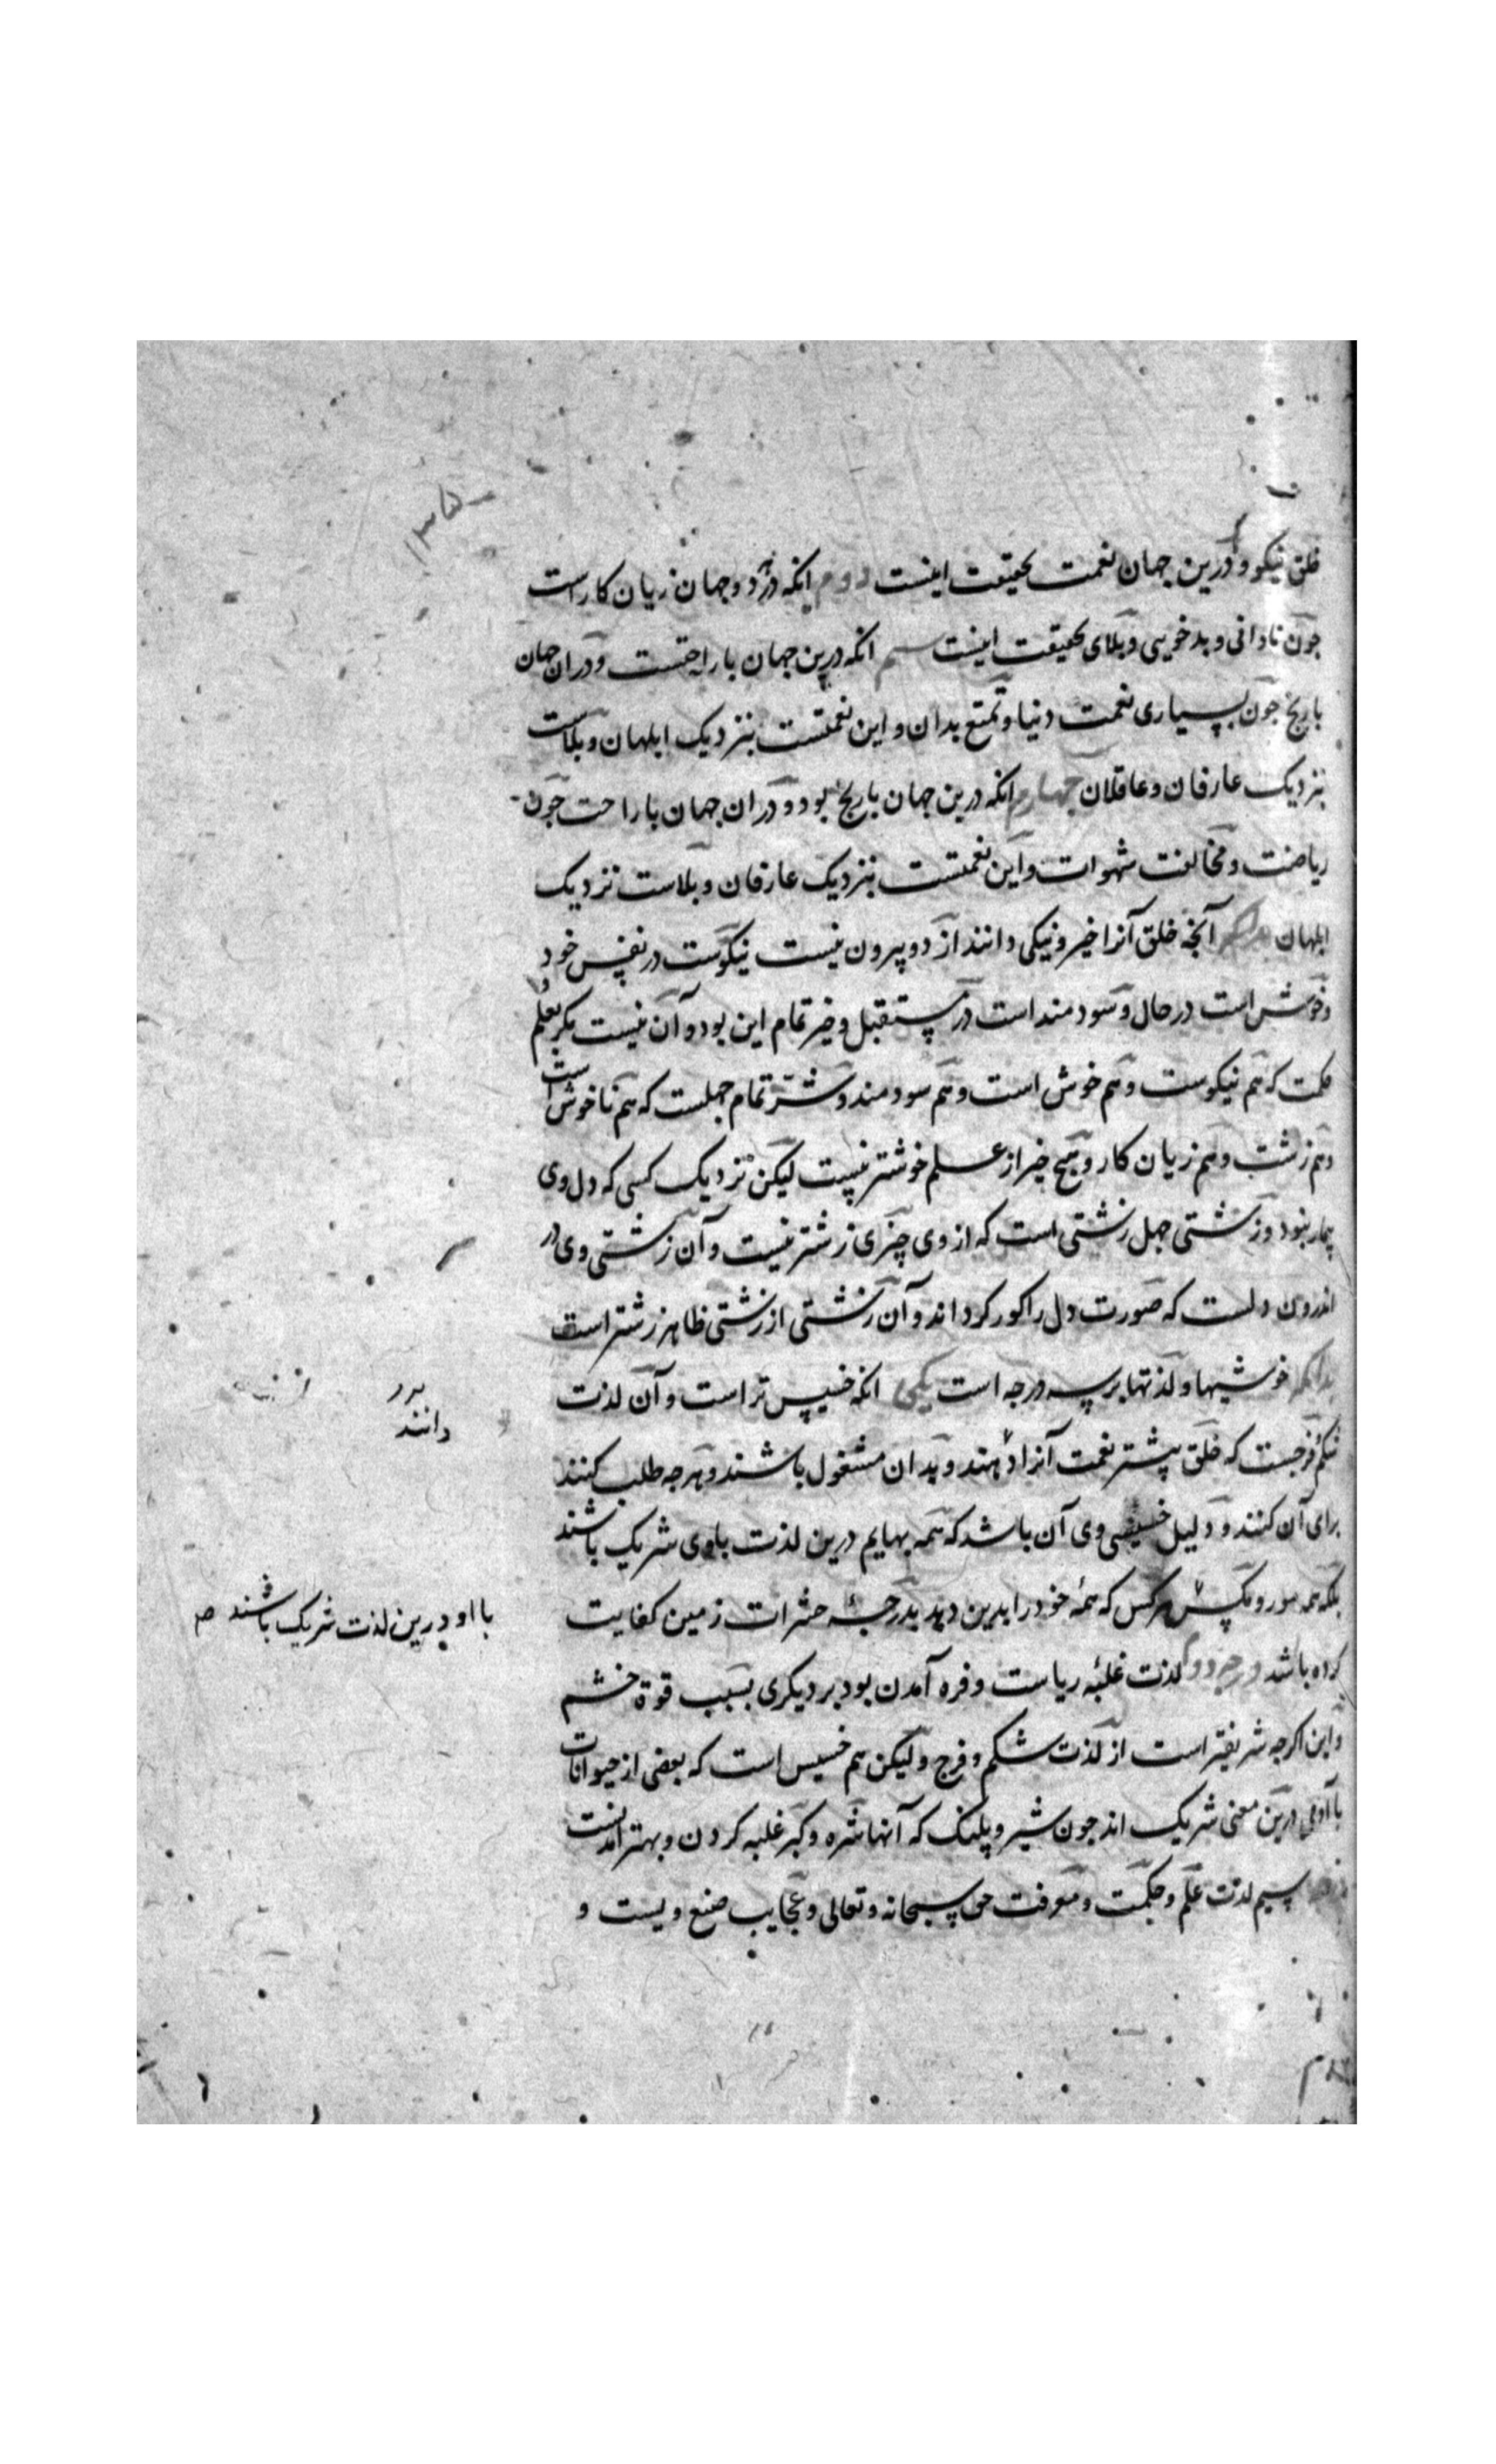 خلق نیکو و درین جهان نعمت بحقیقت اینست دوم انکه در هر دو جهان زیان کار است
جون نادانی و بد خویی و بلای بحقیقت اینست سیم انکه درین جهان با راحتست و دران جهان
با رنج جون بسیاری نعمت دنیا و تمتع بدان و این نعمتست بنزدیک ابلهان و بلاست
بنزدیک عارفان و عاقلان جهارم انکه درین جهان با رنج بود و دران جهان با راحت جون
ریاضت و مخالفت شهوات و این نعمتست بنزدیک عارفان و بلاست نزدیک
ابلهان بدانکه آنجه خلق آنرا خیر و نیکی دانند از دو بیرون نیست نیکوست در نفس خود
و خوش است در حال و سودمند است در مستقبل و خیر تمام این بود و آن نیست مکر بعلم و
حکمت که هم نیکوست و هم خوش است و هم سودمند و شر تمام جهلست که هم ناخوش است
و هم زشت و هم زیان کار و هیج خیر از علم خوشتر نیست لیکن نزدیک کسی که دل وی
بیمار نبود و زشتی جهل زشتی است که از وی جیزی زشتر نیست و آن زشتی وی در
اندرون دلست که صورت دل را کور کرداند و آن زشتی از زشتی ظاهر زشتر است
بدانکه خوشیها و لذتها بر سه درجه است یکی انکه خسیس تر است و آن لذت
شکم و فرجست که خلق بیشتر نعمت آنرا دهند و بدان مشغول باشند و هرجه طلب کنند
دانند
برای آن کنند و دلیل خسیسی وی آن باشد که همه بهایم درین لذت با وی شریک باشند
بلکه همه مور و مکس هر کس که همهٔ خود را بدین دید بدرجهٔ حشرات زمین کفایت
با او درین لذت شریک باشند صح
کرده باشد درجه دوم لذت غلبهٔ ریاست و فره آمدن بود بر دیکری بسبب قوة خشم
و این اکرجه شریفتر است از لذت شکم و فرج و لیکن هم خسیس است که بعضی از حیوانات
با آدمی درین معنی شریک اند جون شیر و پلنک که آنها شره و کبر غلبه کردن و بهتر آمدنست
سیم لذت علم و حکمت و معرفت حق سبحانه و تعالی و عجایب صنع ویست و